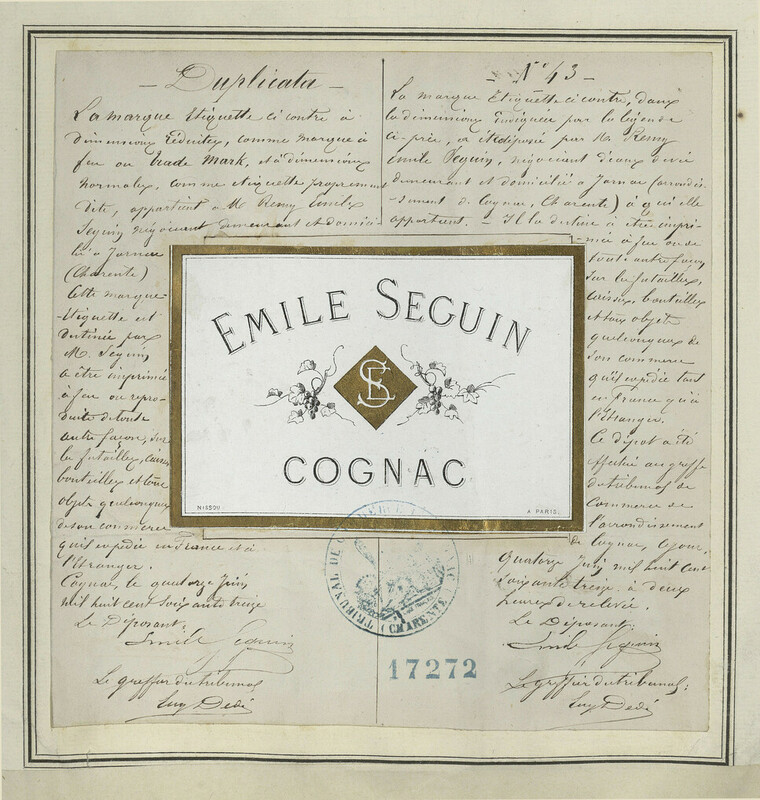 — Duplicata —
La marque Etiquette ci contre à
dimensions réduites, comme marque à
feu ou trade mark, et à dimensions
normales, comme etiquette proprement
dite, appartient à M. Remy Emile
Seguin négociant demeurant et domici-
lié à Jarnac
(Charente)
Cette marque
-Etiquette est
destinée par
M. Seguin,
à être imprimée
à feu ou repro-
duite de toute
autre façon, sur
les futailles, caisses
bouteilles et tous
objets quelconques
de son commerce
qu'il expédie en France et à
l'Etranger.
Cognac, le quatorze Juin
mil huit cent soixante treize
Le Déposant.
Emile Seguin
Le greffier du tribunal
Eug Dedé
— N° 43 —
La marque Etiquette ci contre, dans
les dimensions indiquées par la légende
ci-près, a été déposée par M. Remy
Emile Seguin, négociant d'eaux de vie
demeurant et domicilié à Jarnac (arrondis-
sement de Cognac, Charente) à qui elle
appartient. — Il la destine à être impri-
mée à feu ou de
toute autre façon,
sur les futailles,
caisses, bouteilles
et tous objets
quelconques de
son commerce
qu'il expédie tant
en France qu'à
l'Etranger.
Le dépôt a été
effectué au greffe
du tribunal de
Commerce de
l'arrondissement
de Cognac, ce jour,
quatorze Juin mil huit cent
soixante treize, à deux
heures de relevée.
Le Déposant:
Emile Seguin
Le greffier du tribunal:
Eug Dedé
EMILE SEGUIN
ES
COGNAC
NISSOU
A PARIS.
TRIBUNAL DE COMMERCE
(CHARENTE)
17272